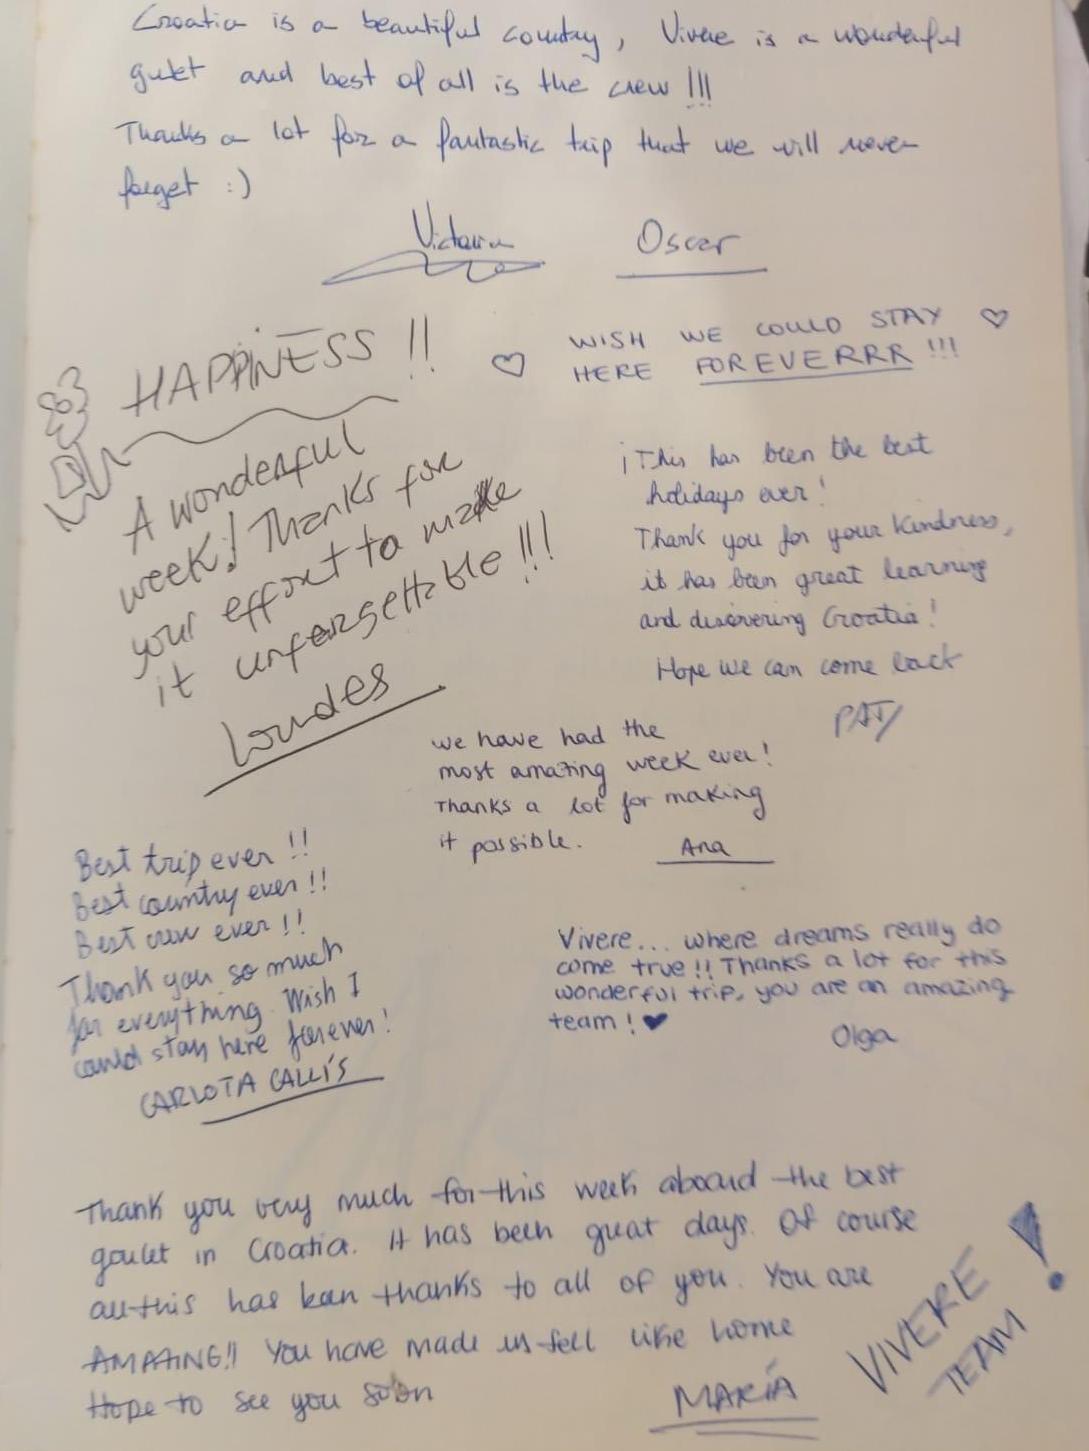 Croatia is a beautiful country, Vivere is a wonderful
gulet and best of all is the crew !!!
Thanks a lot for a fantastic trip that we will never
forget :)
Victoria
Oscar
HAPPINESS !!
A wonderful
week! Thanks for
your effort to make
it unforgettable !!!
Lourdes
♡ WISH WE COULD STAY ♡
HERE FOREVERRR !!!
¡This has been the best
holidays ever!
Thank you for your kindness,
it has been great learning
and discovering Croatia!
Hope we can come back
PATY
we have had the
most amazing week ever!
Thanks a lot for making
it possible.
Ana
Best trip ever !!
Best country ever !!
Best crew ever !!
Thank you so much
for everything. Wish I
could stay here forever!
CARLOTA CALLÍS
Vivere... where dreams really do
come true!! Thanks a lot for this
wonderful trip, you are an amazing
team! ♥
Olga
Thank you very much for this week aboard the best
goulet in Croatia. It has been great days. Of course
all this has been thanks to all of you. You are
AMAZING!! You have made us fell like home
Hope to see you soon
MARÍA
VIVERE
TEAM !